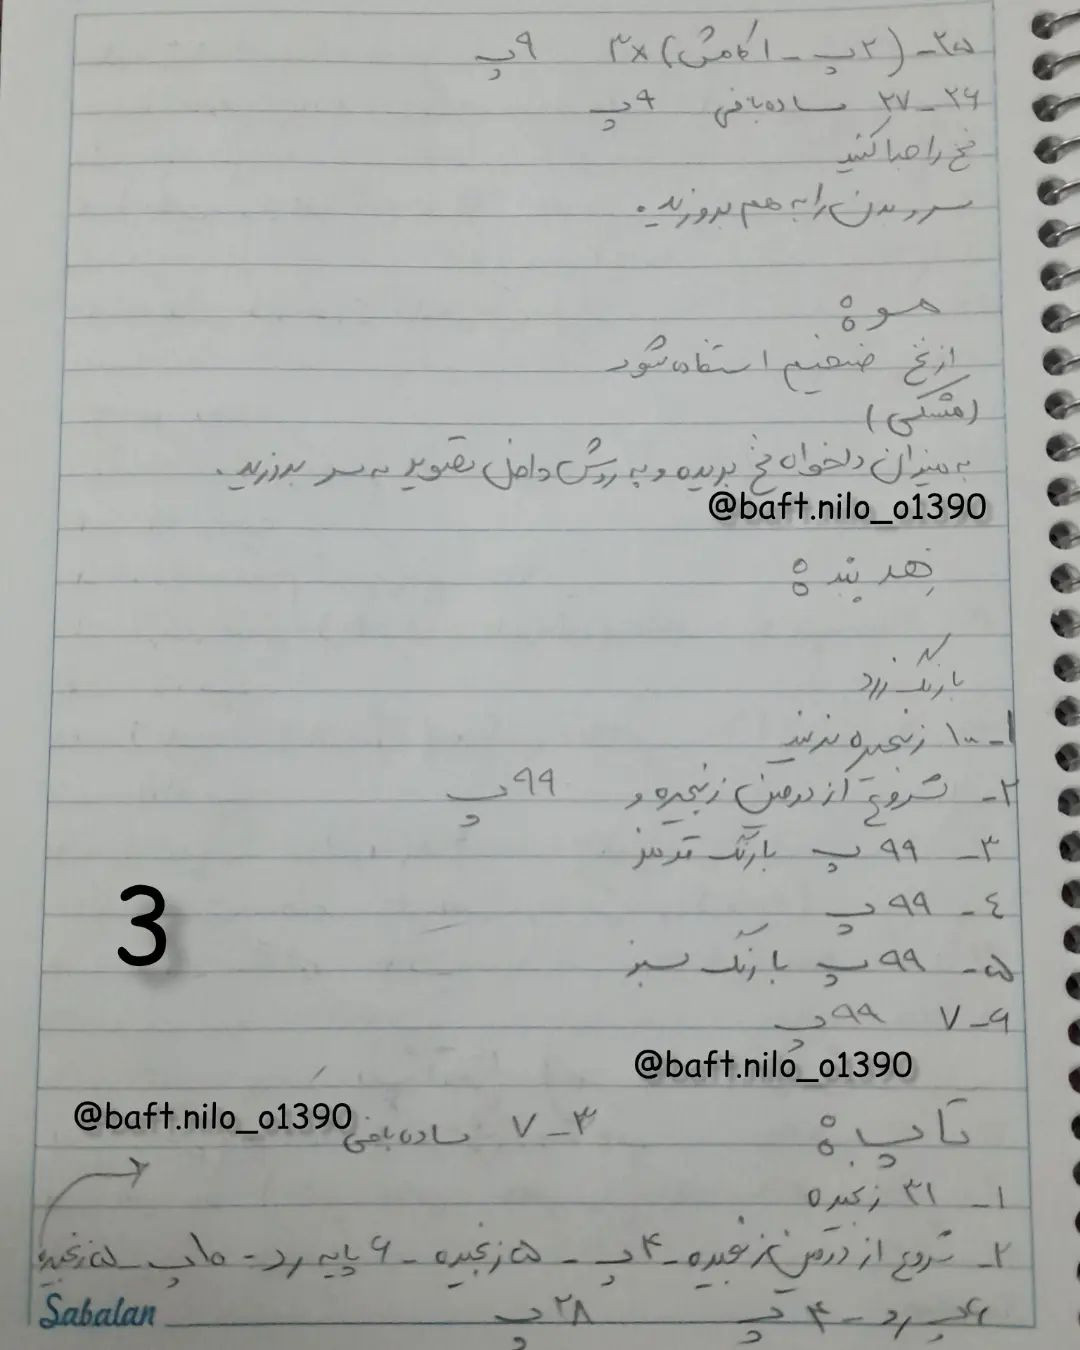 ۲۵- (۲پ - ۱کاهش) ×۳ ۹پ
۲۶-۲۷ ساده‌بافی ۹پ
نخ را جدا کنید
سر و بدن را به هم بدوزید.
مو:
از نخ ضخیم استفاده شود
(مشکی)
به میزان دلخواه نخ بریده و به روش داخل تصویر به سر بدوزید.
@baft.nilo_o1390
هدبند:
با رنگ زرد
۱- ۱۰۰ زنجیره بزنید
۲- شروع از دومین زنجیره و ۹۹پ
۳- ۹۹پ با رنگ قرمز
۴- ۹۹پ
3
۵- ۹۹پ با رنگ سبز
۶-۷ ۹۹پ
@baft.nilo_o1390
@baft.nilo_o1390
تاپ: ۳-۷ ساده‌بافی
۱- ۳۱ زنجیره
۲- شروع از دومین زنجیره - ۴پ - ۵زنجیره - ۶ پایه رد - ۱۰پ - ۵زنجیره
۶پ رد - ۴پ ۲۸پ
Sabalan